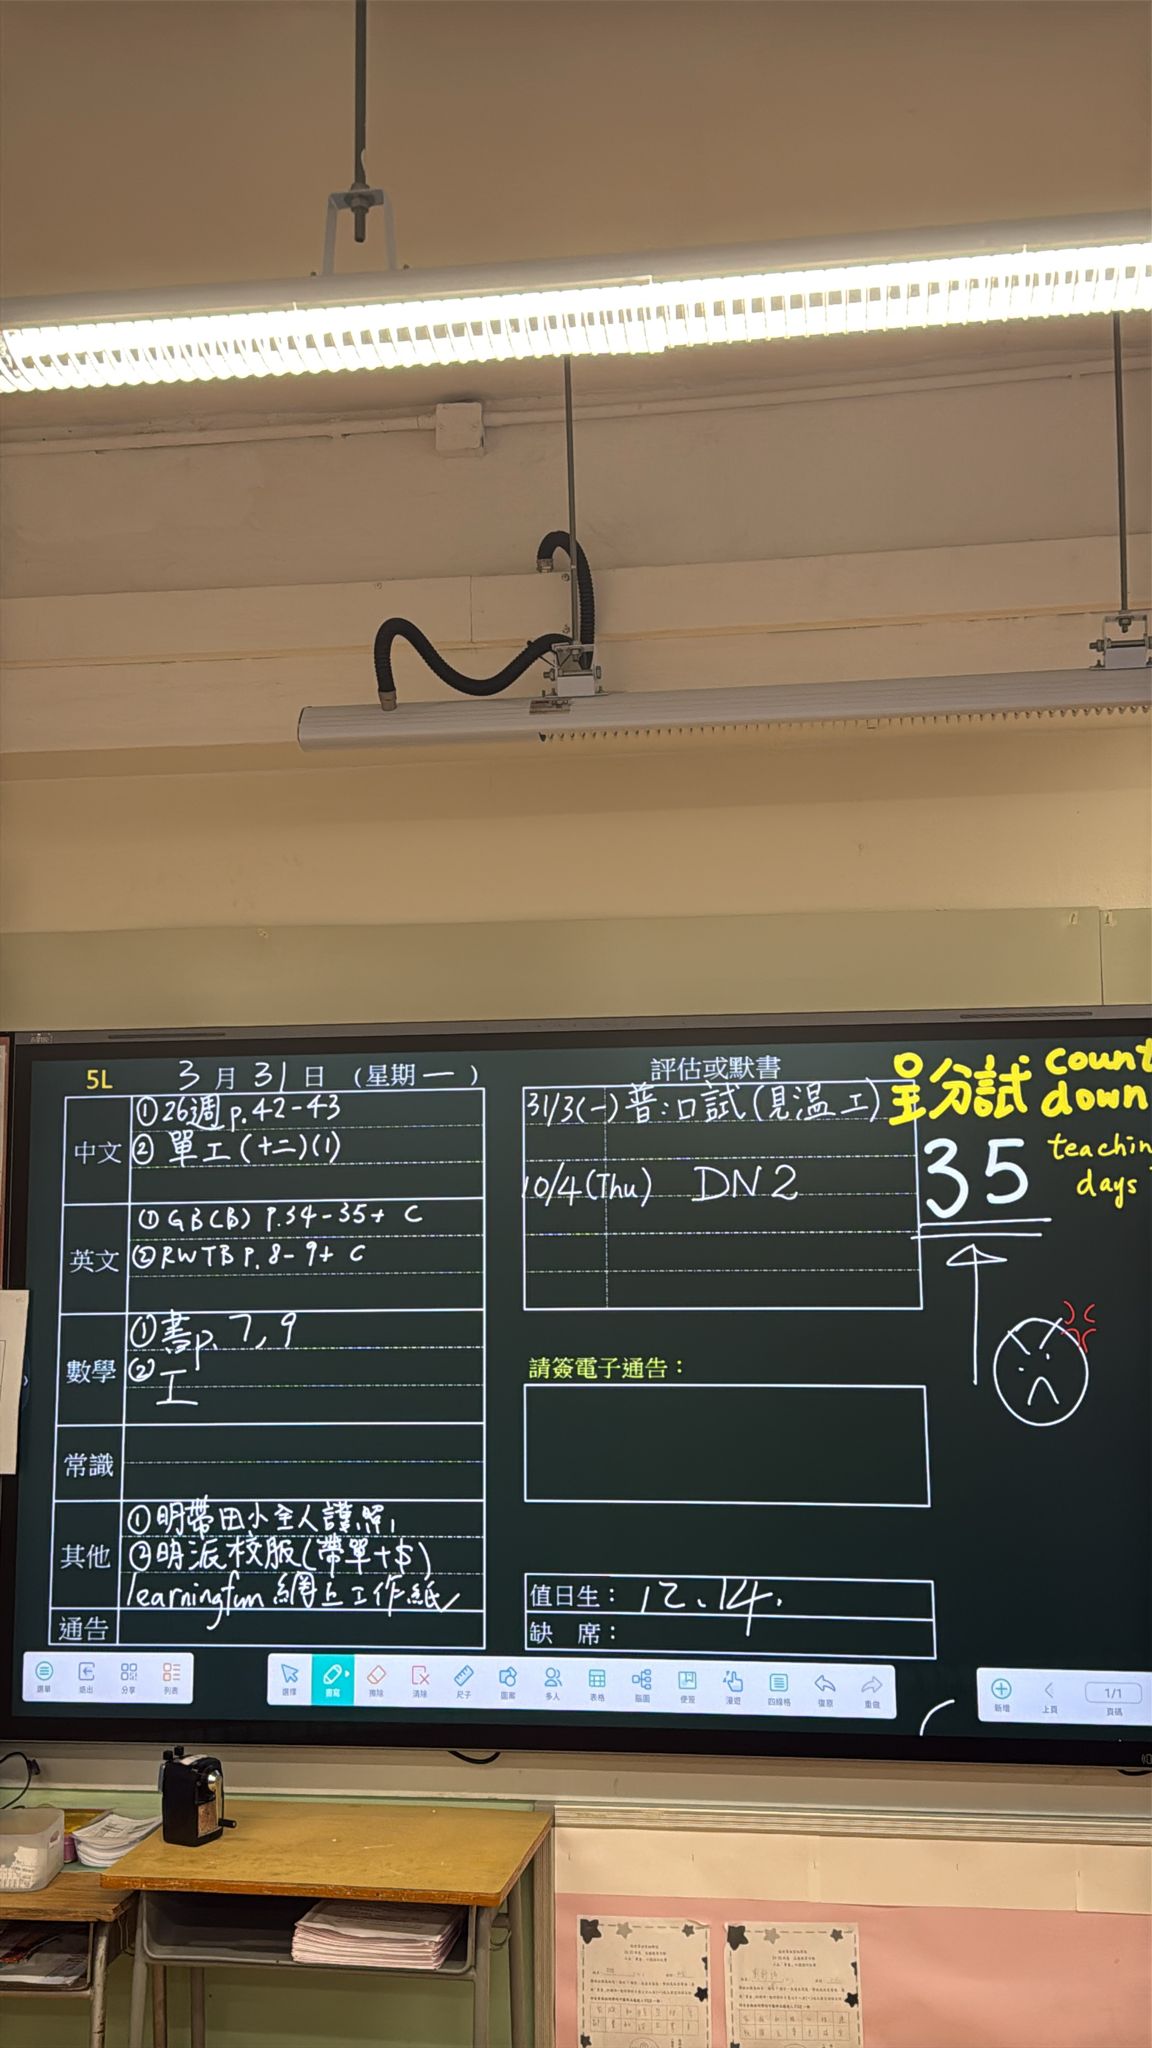 5L 3月31日 (星期一)
中文
①26週 p.42-43
② 單工(十二)(1)
英文
① GB(B) P.34-35+ C
② RWTB P.8-9+ C
數學
① 書p.7,9
② 工
常識
其他
①明帶田小全人護照,
②明派校服(帶單+$)
learningfun 網上工作紙
通告
評估或默書
31/3(一) 普:口試(見溫工)
10/4(Thu) DN2
請簽電子通告：
值日生： 12、14.
缺 席：
呈分試 count down
35 teachin
days
選單 退出 分享 列表
選擇 書寫 擦除 清除 尺子 圖案 多人 表格 腦圖 便簽 漫遊 四線格 復原 重做
新增 上頁 1/1 頁碼